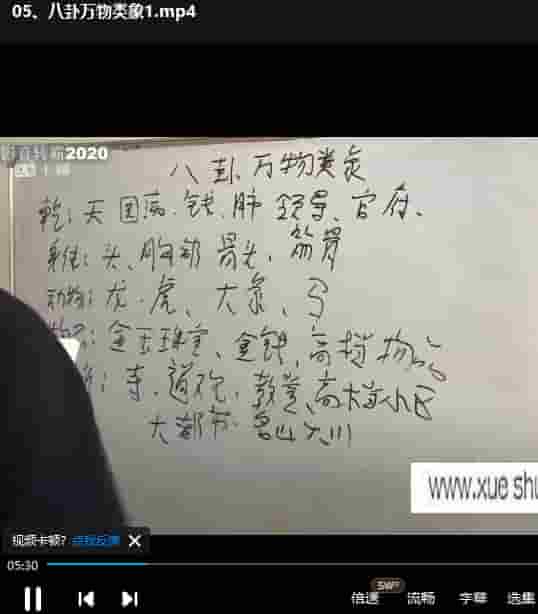 05、八卦万物类象1.mp4
2020
八卦万物类象
乾：天 圆满、钱、肺 领导、官府、
身体：头、胸部 骨头、筋骨
动物：龙、虎、大象、
金玉珠宝、金钱、高档物品
寺、道院、教堂、高档小区
大都市、名山大川
www.xue shu
视频卡顿？点我反馈
05:30
SVIP
倍速 流畅 字幕 选集